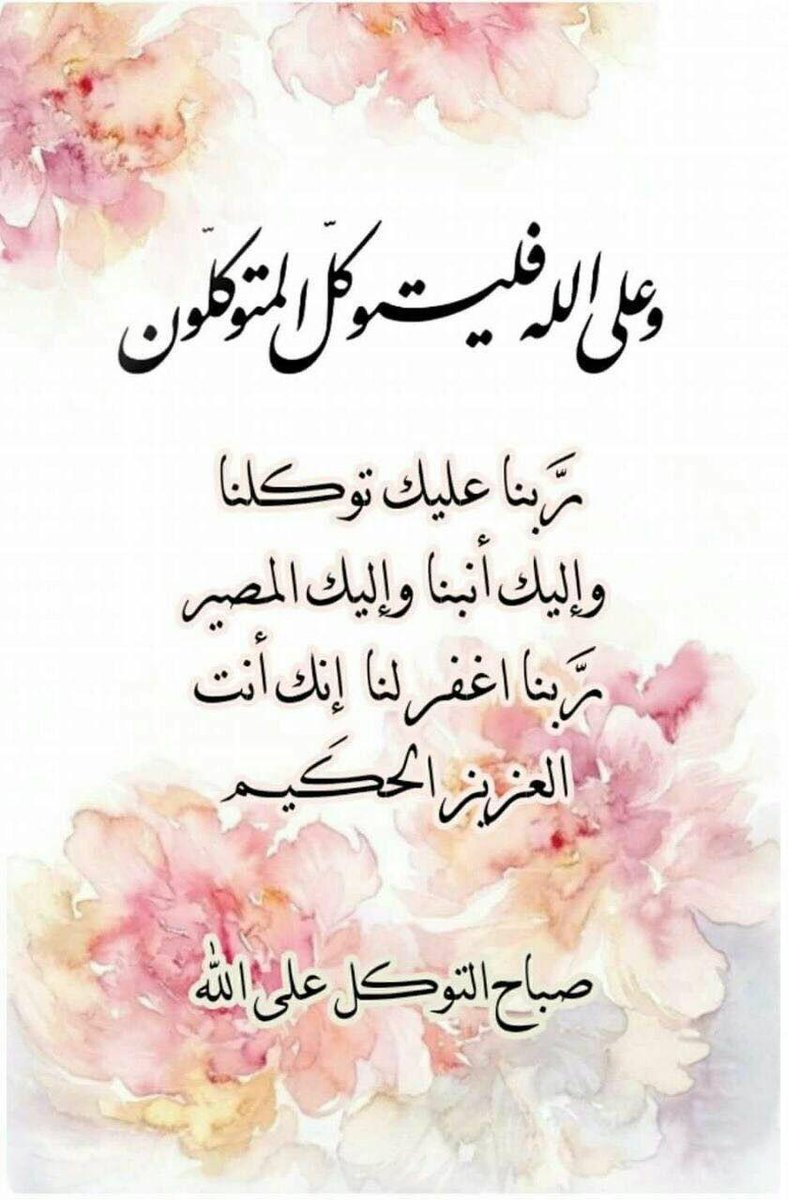 وعلى الله فليتوكلّ المتوكلّون
رَّبنا عليك توكلنا
وإليك أنبنا وإليك المصير
رَّبنا اغفر لنا إنك أنت
العزيز الحكَيم
صباح التوكل على الله